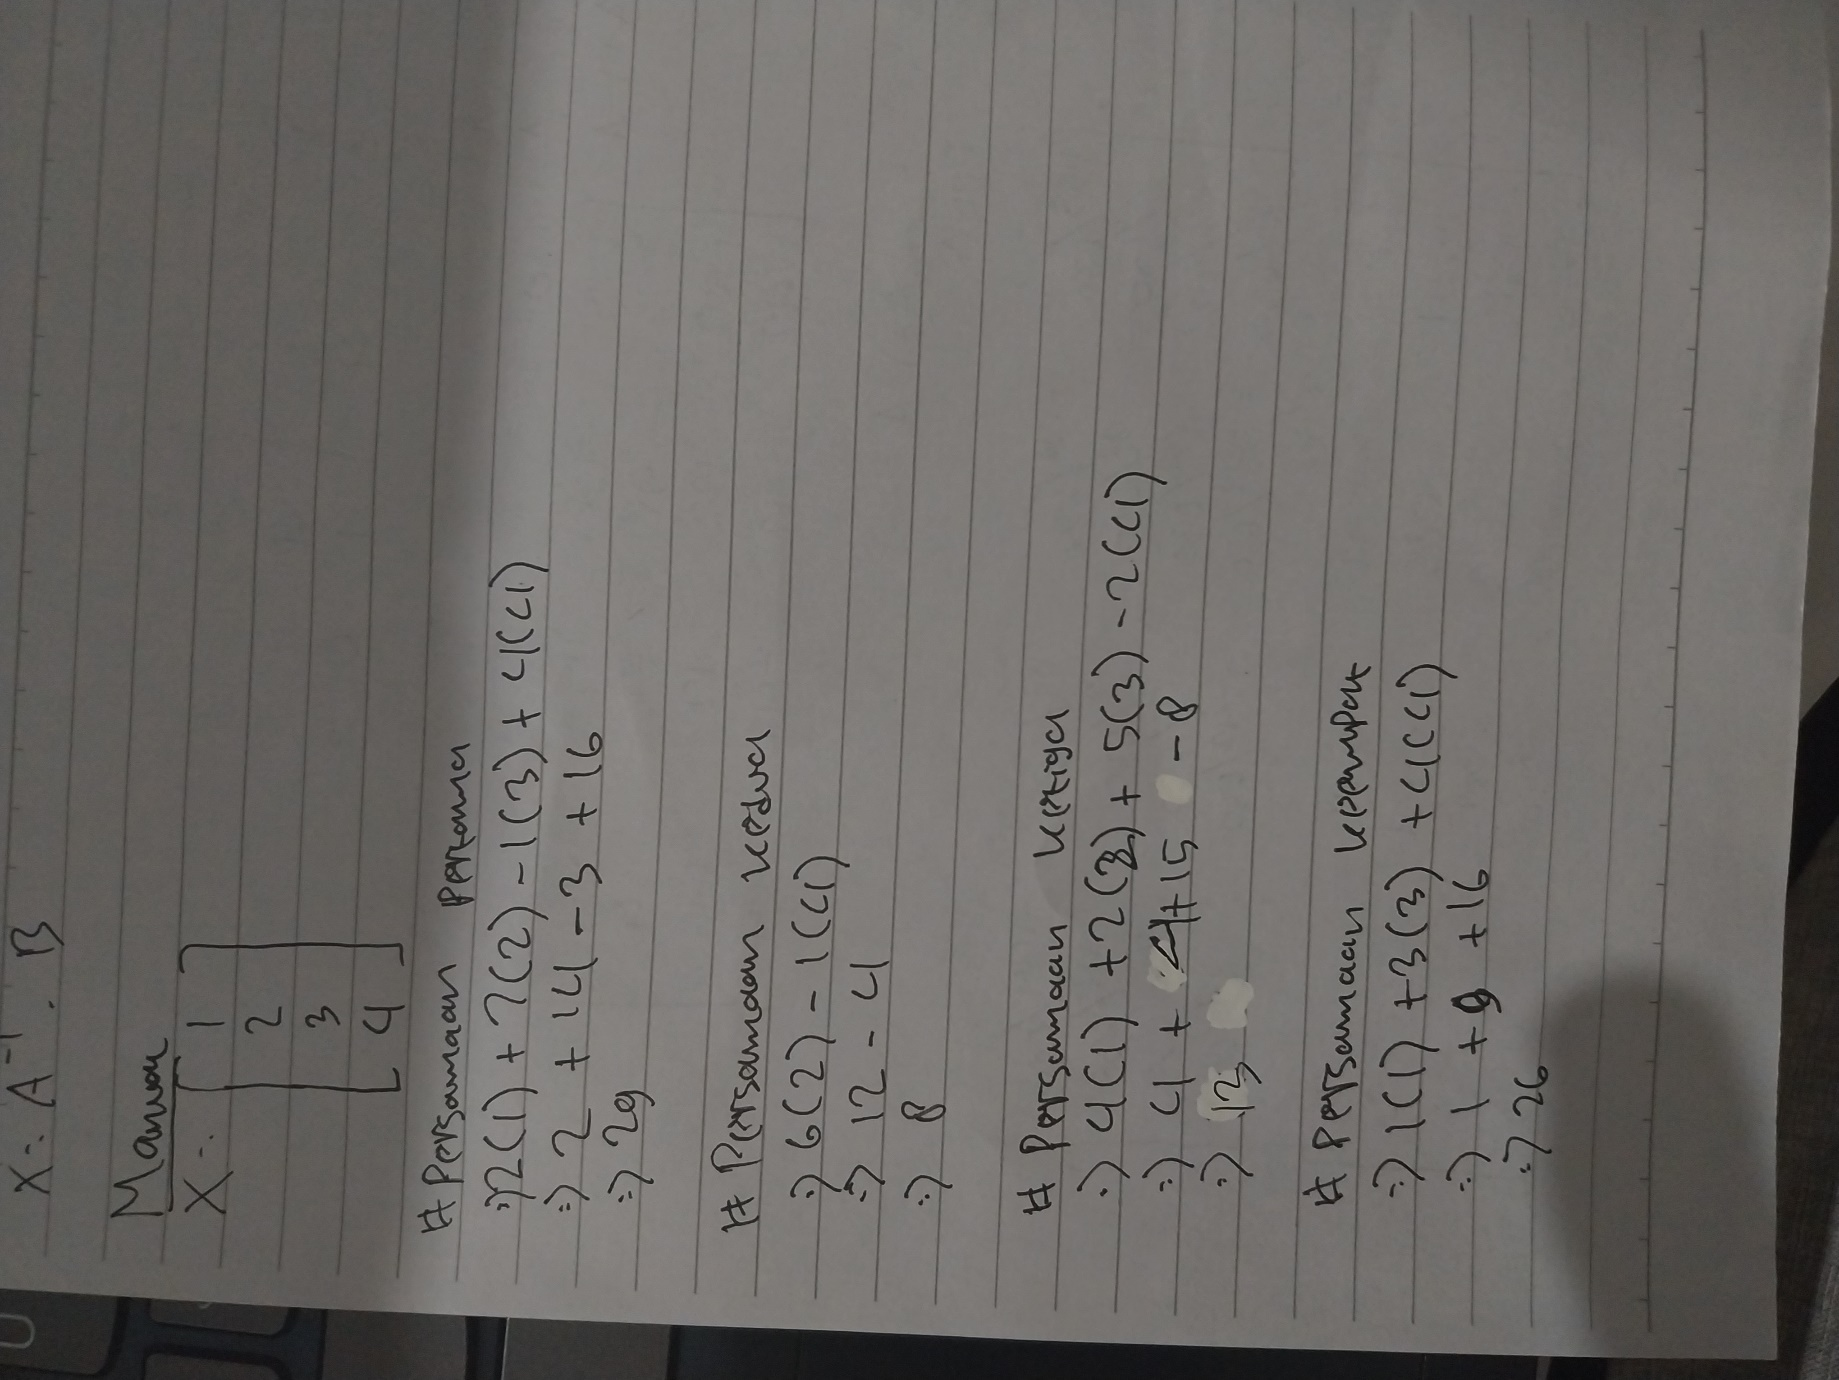 X = A⁻¹ . B
Maka
X =
1
2
3
4
# Persamaan pertama
=> 2(1) + 7(2) - 1(3) + 4(4)
=> 2 + 14 - 3 + 16
=> 29
# Persamaan kedua
=> 6(2) - 1(4)
=> 12 - 4
=> 8
# Persamaan ketiga
=> 4(1) + 2(2) + 5(3) - 2(4)
=> 4 + 4 + 15 - 8
=> 13
# Persamaan keempat
=> 1(1) + 3(3) + 4(4)
=> 1 + 9 + 16
=> 26